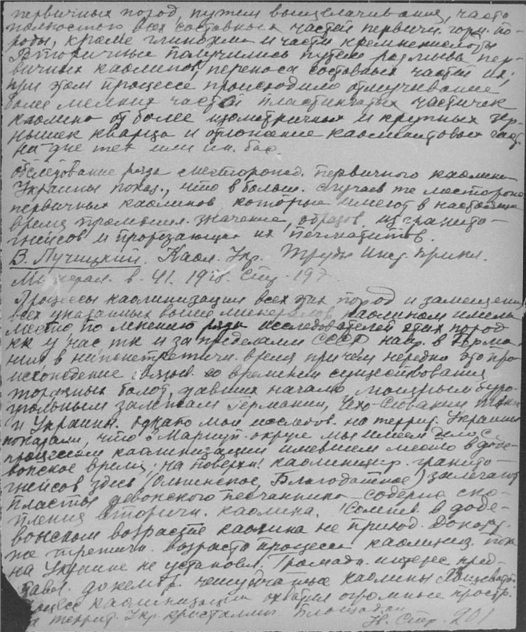 первичных пород, путем выщелачивания, часто
полностью всех составных частей первичн. горн. по-
роды, кроме глинозем. и части кремнекислоты
Вторичные получились путем размыва пер-
вичных каолинов, переноса составных частей их;
при этом процессе происходило отмучивание
более мелких частей пластинчатых частичек
каолина от более изометричных и крупных зер-
нышек кварца и отложение каолинитовых част.
на дне тех или ин. бас.
Обследование ряда месторожд. первичного каолина
Украины показ., что в больш. случаев те месторожд
первичных каолинов которые имеют в настоящее
время промышл. значение, образов. из гранито-
гнейсов и прорезающих их пегматитов.
В. Лучицкий. Каол. Укр. Труды Инст. Прикл.
Минерал. в. 41. 1928. Стр. 197
Процессы каолинизации всех этих пород и замещение
всех указанных выше минералов каолином имели
место по мнению ряда исследователей этих пород
как у нас так и за пределами СССР напр. в Герма-
нии в нижнетретичн. время причем нередко это про-
исхождение связыв. со временем существования
торфяных болот, давших начало мощным буро-
угольным залежам Германии, Чехо-Словакии
и Украины. Однако мои исследов. на террит. Украины
показали, что в Мариуп. округе мы имеем дело с
процессом каолинизации имевшем место в доде-
вонское время; на поверхн. каолинизир. гранито-
гнейсов здесь (Ольгинское, Благодатное) залегают
пласты девонского песчаника содерж. ско-
пления вторичн. каолина. Сомнев. в доде-
вонском возрасте каолина не приход. Доказ.
же третичн. возраста процесса каолиниз.
на Украине не установл. Громадн. интерес пред-
ставл. докембр. чешуйчатые каолины
процесс каолинизации охватил огромные простр.
и террит. Укр. кристаллич.
Стр. 201